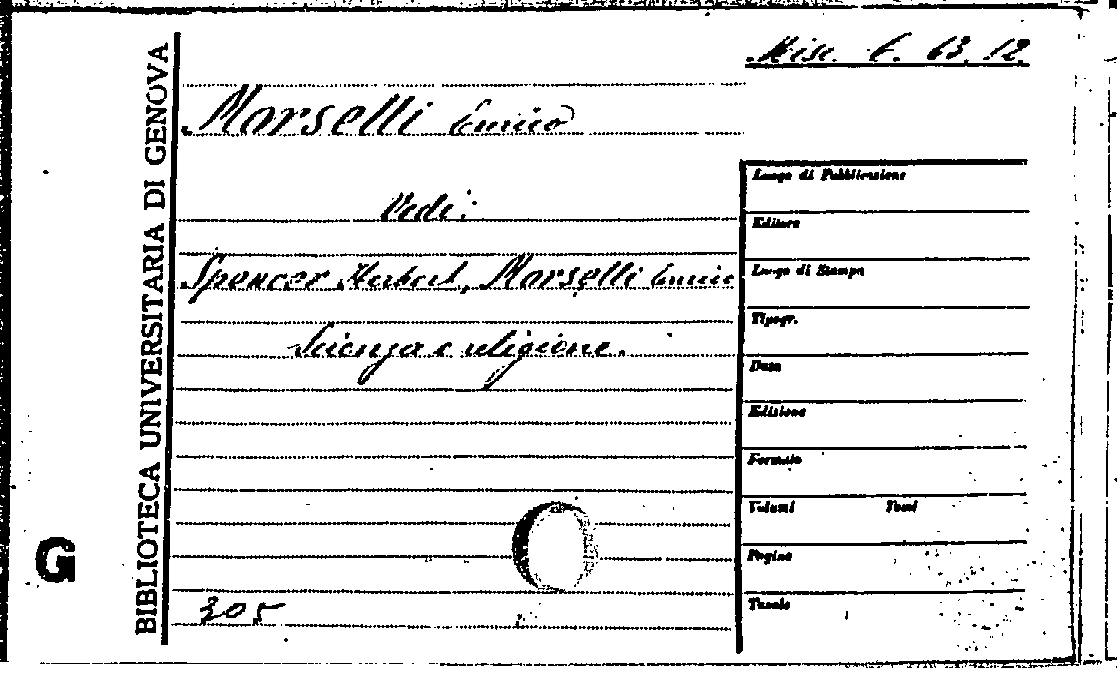 Misc. E. 63. 12.
Morselli Enrico
Vedi:
Spencer Herbert, Morselli Enrico
Scienza e religione.
305
BIBLIOTECA UNIVERSITARIA DI GENOVA
G
Luogo di Pubblicazione
Editore
Luogo di Stampa
Tipogr.
Data
Edizione
Formato
Volumi Tomi
Pagine
Tavole